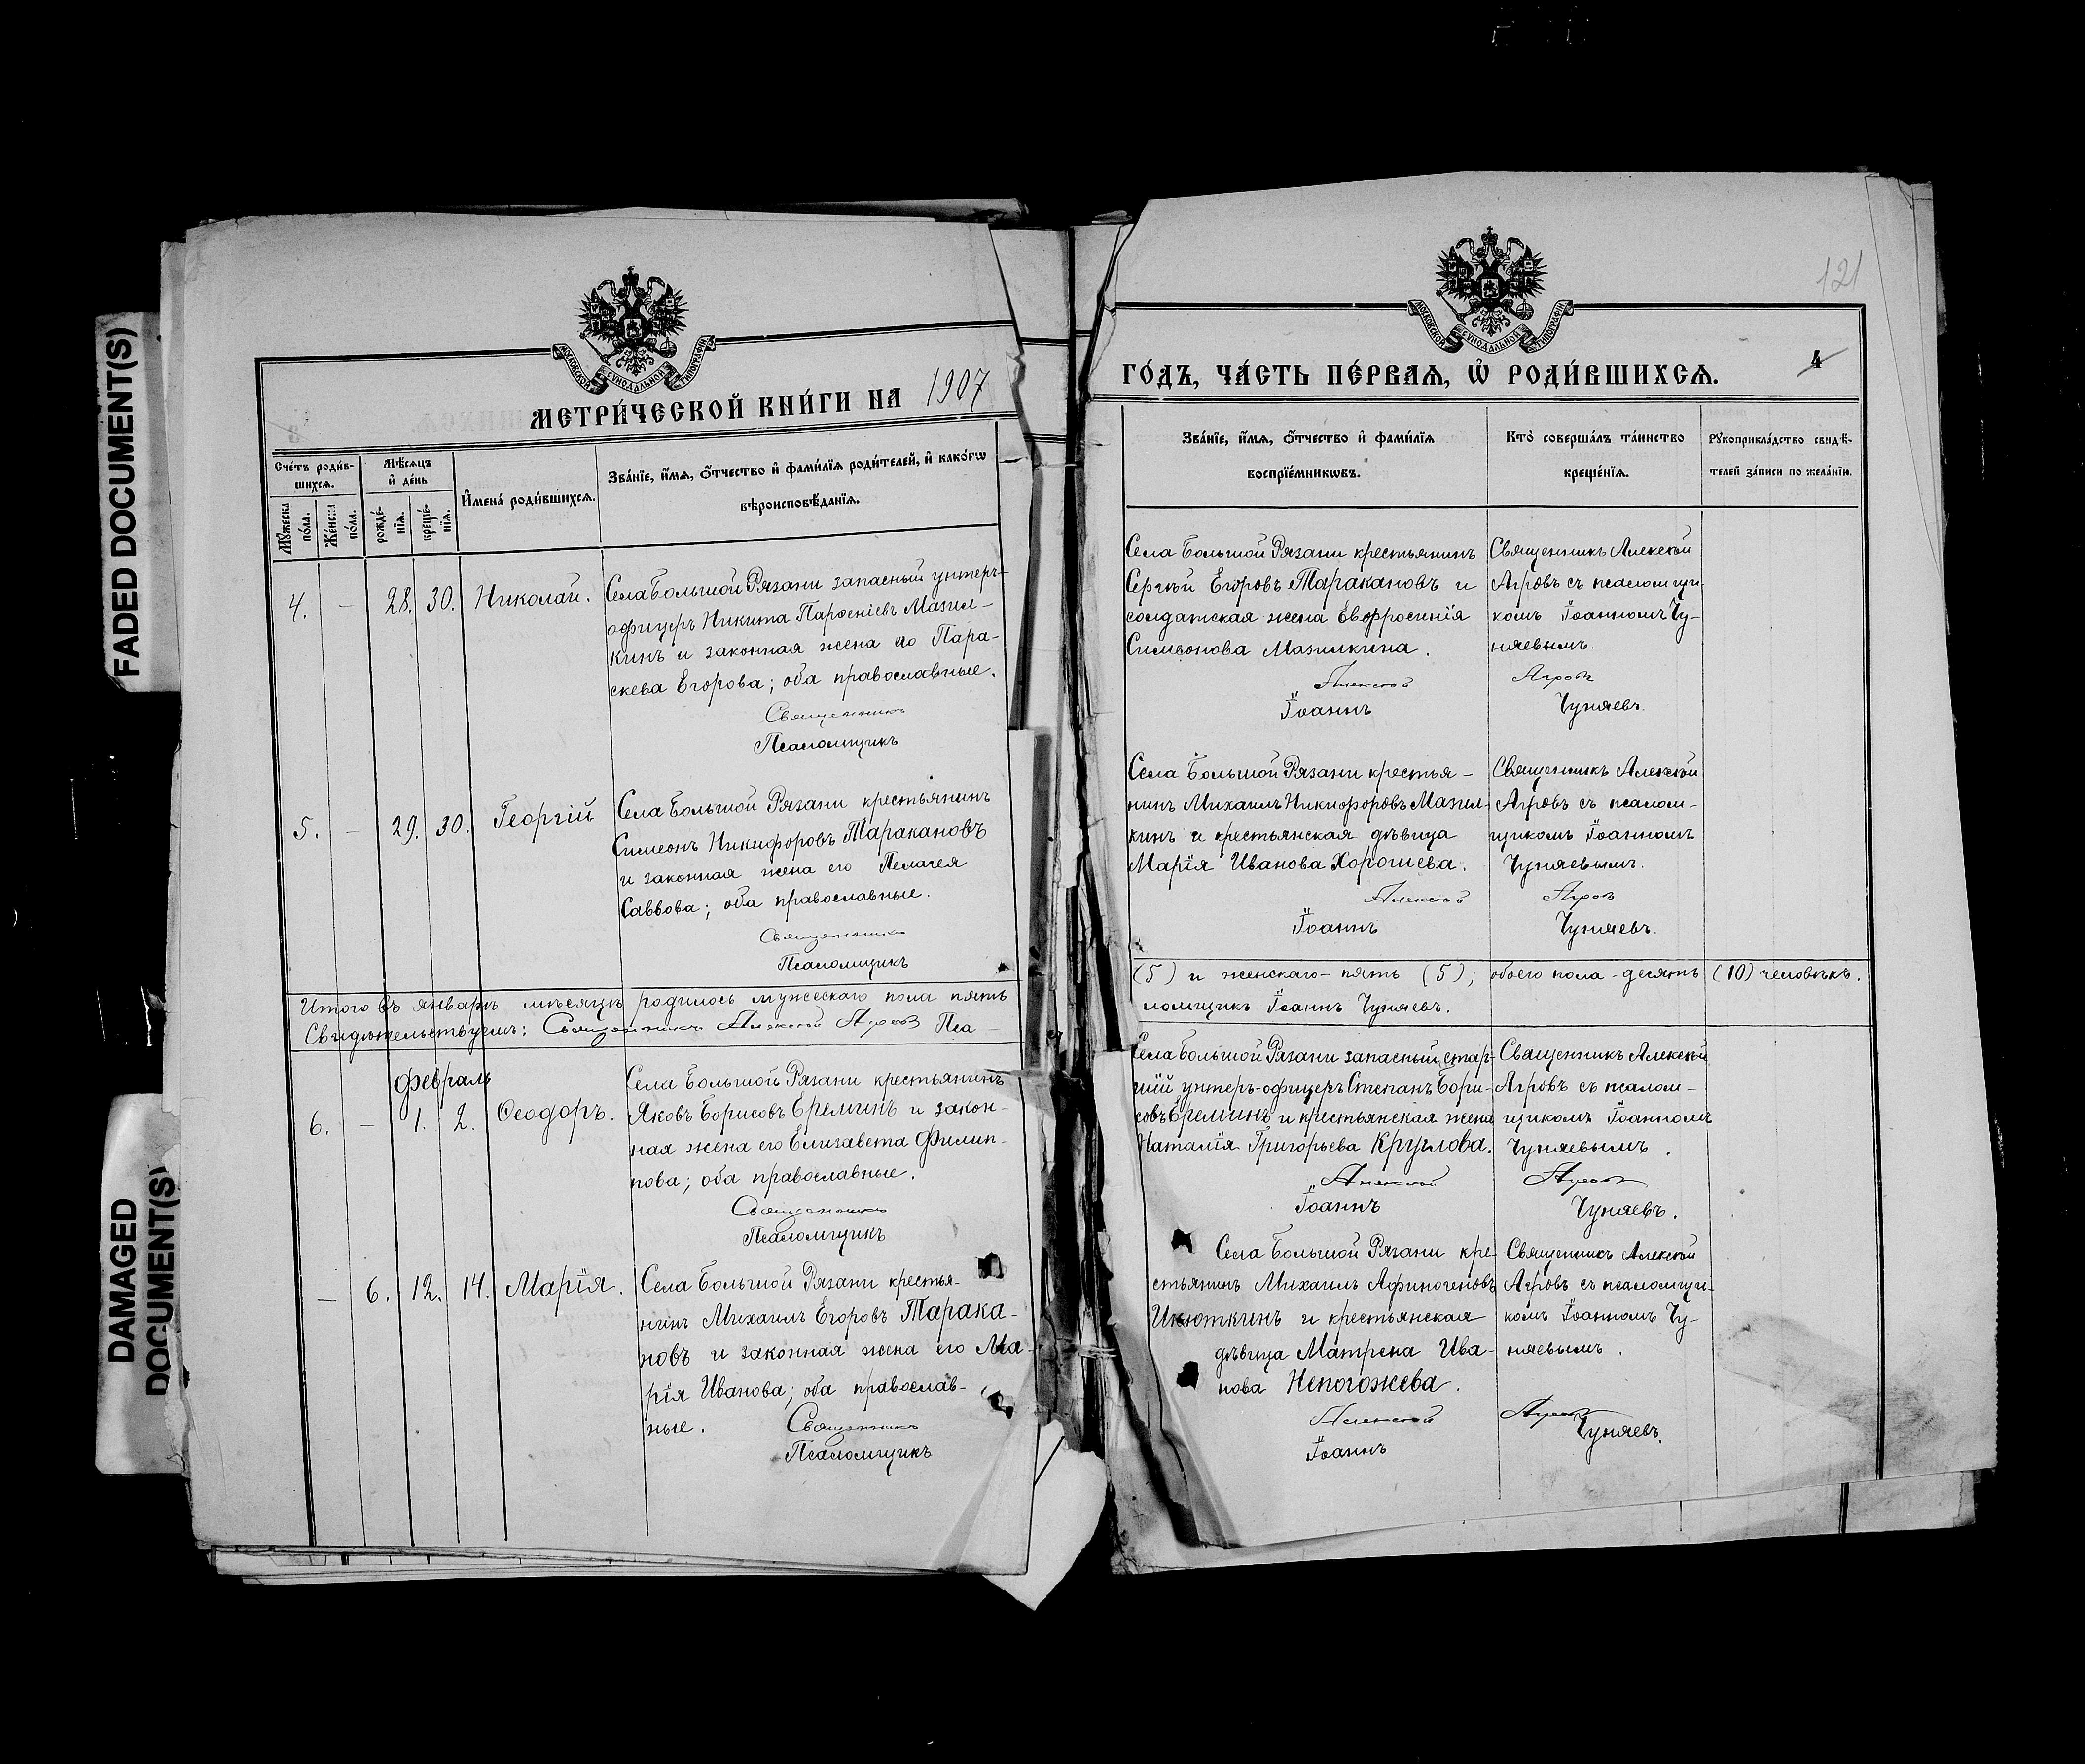 FADED DOCUMENT(S)
DAMAGED
DOCUMENT(S)
МОСКОВСКОЙ СѴНОДАЛЬНОЙ ТИПОГРАФІИ
МЕТРИ́ЧЕСКОЙ КНИ́ГИ НА 1907
Сче́тъ роди́в-
шихсѧ.
Мꙋ́жеска по́ла.
Же́нска по́ла.
Мѣ́сѧцъ
и҆ де́нь
рожде́-
нїѧ.
креще́-
нїѧ.
И҆мена̀ роди́вшихсѧ.
Зва́нїе, и҆́мѧ, ѻ҆́тчество и҆ фами́лїѧ роди́телей, и҆ како́гѡ
вѣроисповѣ́данїѧ.
4. – 28. 30. Николай.
Села Большой Рязани запасный унтеръ-
офицеръ Никита Парѳеніевъ Мазил-
кинъ и законная жена его Пара-
скева Егорова; оба православные.
Священникъ
Псаломщикъ
5. – 29. 30. Георгій
Села Большой Рязани крестьянинъ
Симеонъ Никифоровъ Таракановъ
и законная жена его Пелагея
Саввова; оба православные.
Священникъ
Псаломщикъ
Итого въ январѣ мѣсяцѣ родилось мужескаго пола пять
Свидѣтельствуемъ: Священникъ Алексѣй Агровъ Пса-
Февраль
6. – 1. 2. Ѳеодоръ.
Села Большой Рязани крестьянинъ
Яковъ Борисовъ Ереминъ и закон-
ная жена его Елизавета Филип-
пова; оба православные.
Священникъ
Псаломщикъ
– 6. 12. 14. Марія.
Села Большой Рязани крестья-
нинъ Михаилъ Егоровъ Тарака-
новъ и законная жена его Ма-
рія Иванова; оба православ-
ные. Священникъ
Псаломщикъ
121
МОСКОВСКОЙ СѴНОДАЛЬНОЙ ТИПОГРАФІИ
ГО́ДЪ, ЧА́СТЬ ПЕ́РВАѦ, Ѡ҆ РОДИ́ВШИХСѦ.
4
Зва́нїе, и҆́мѧ, ѻ҆́тчество и҆ фами́лїѧ
воспрїе́мникѡвъ.
Кто̀ соверша́лъ та́инство
креще́нїѧ.
Рꙋкоприкла́дство свидѣ́-
телей за́писи по жела́нїю.
Села Большой Рязани крестьянинъ
Сергѣй Егоровъ Таракановъ и
солдатская жена Евфросинія
Симеонова Мазилкина.
Священникъ Алексѣй
Агровъ съ псаломщи-
комъ Іоанномъ Чу-
няевымъ.
Алексѣй Агровъ
Іоаннъ Чуняевъ.
Села Большой Рязани крестья-
нинъ Михаилъ Никифоровъ Мазил-
кинъ и крестьянская дѣвица
Марія Иванова Хорошева.
Священникъ Алексѣй
Агровъ съ псалом-
щикомъ Іоанномъ
Чуняевымъ.
Алексѣй Агровъ
Іоаннъ Чуняевъ.
(5) и женскаго - пять (5); обоего пола - десять (10) человѣкъ.
ломщикъ Іоаннъ Чуняевъ.
Села Большой Рязани запасный стар-
шій унтеръ-офицеръ Степанъ Бори-
совъ Ереминъ и крестьянская жена
Наталія Григорьева Круглова.
Священникъ Алексѣй
Агровъ съ псалом-
щикомъ Іоанномъ
Чуняевымъ.
Алексѣй Агровъ
Іоаннъ Чуняевъ.
Села Большой Рязани кре-
стьянинъ Михаилъ Афиногеновъ
и крестьянская
дѣвица Матрена Ива-
нова Непогожева.
Священникъ Алексѣй
Агровъ съ псаломщи-
комъ Іоанномъ Чу-
няевымъ.
Алексѣй Агровъ
Іоаннъ Чуняевъ.